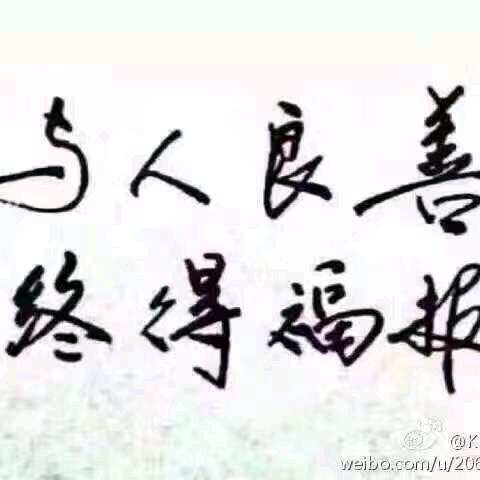 与人良善
终得福报
@K
weibo.com/u/206